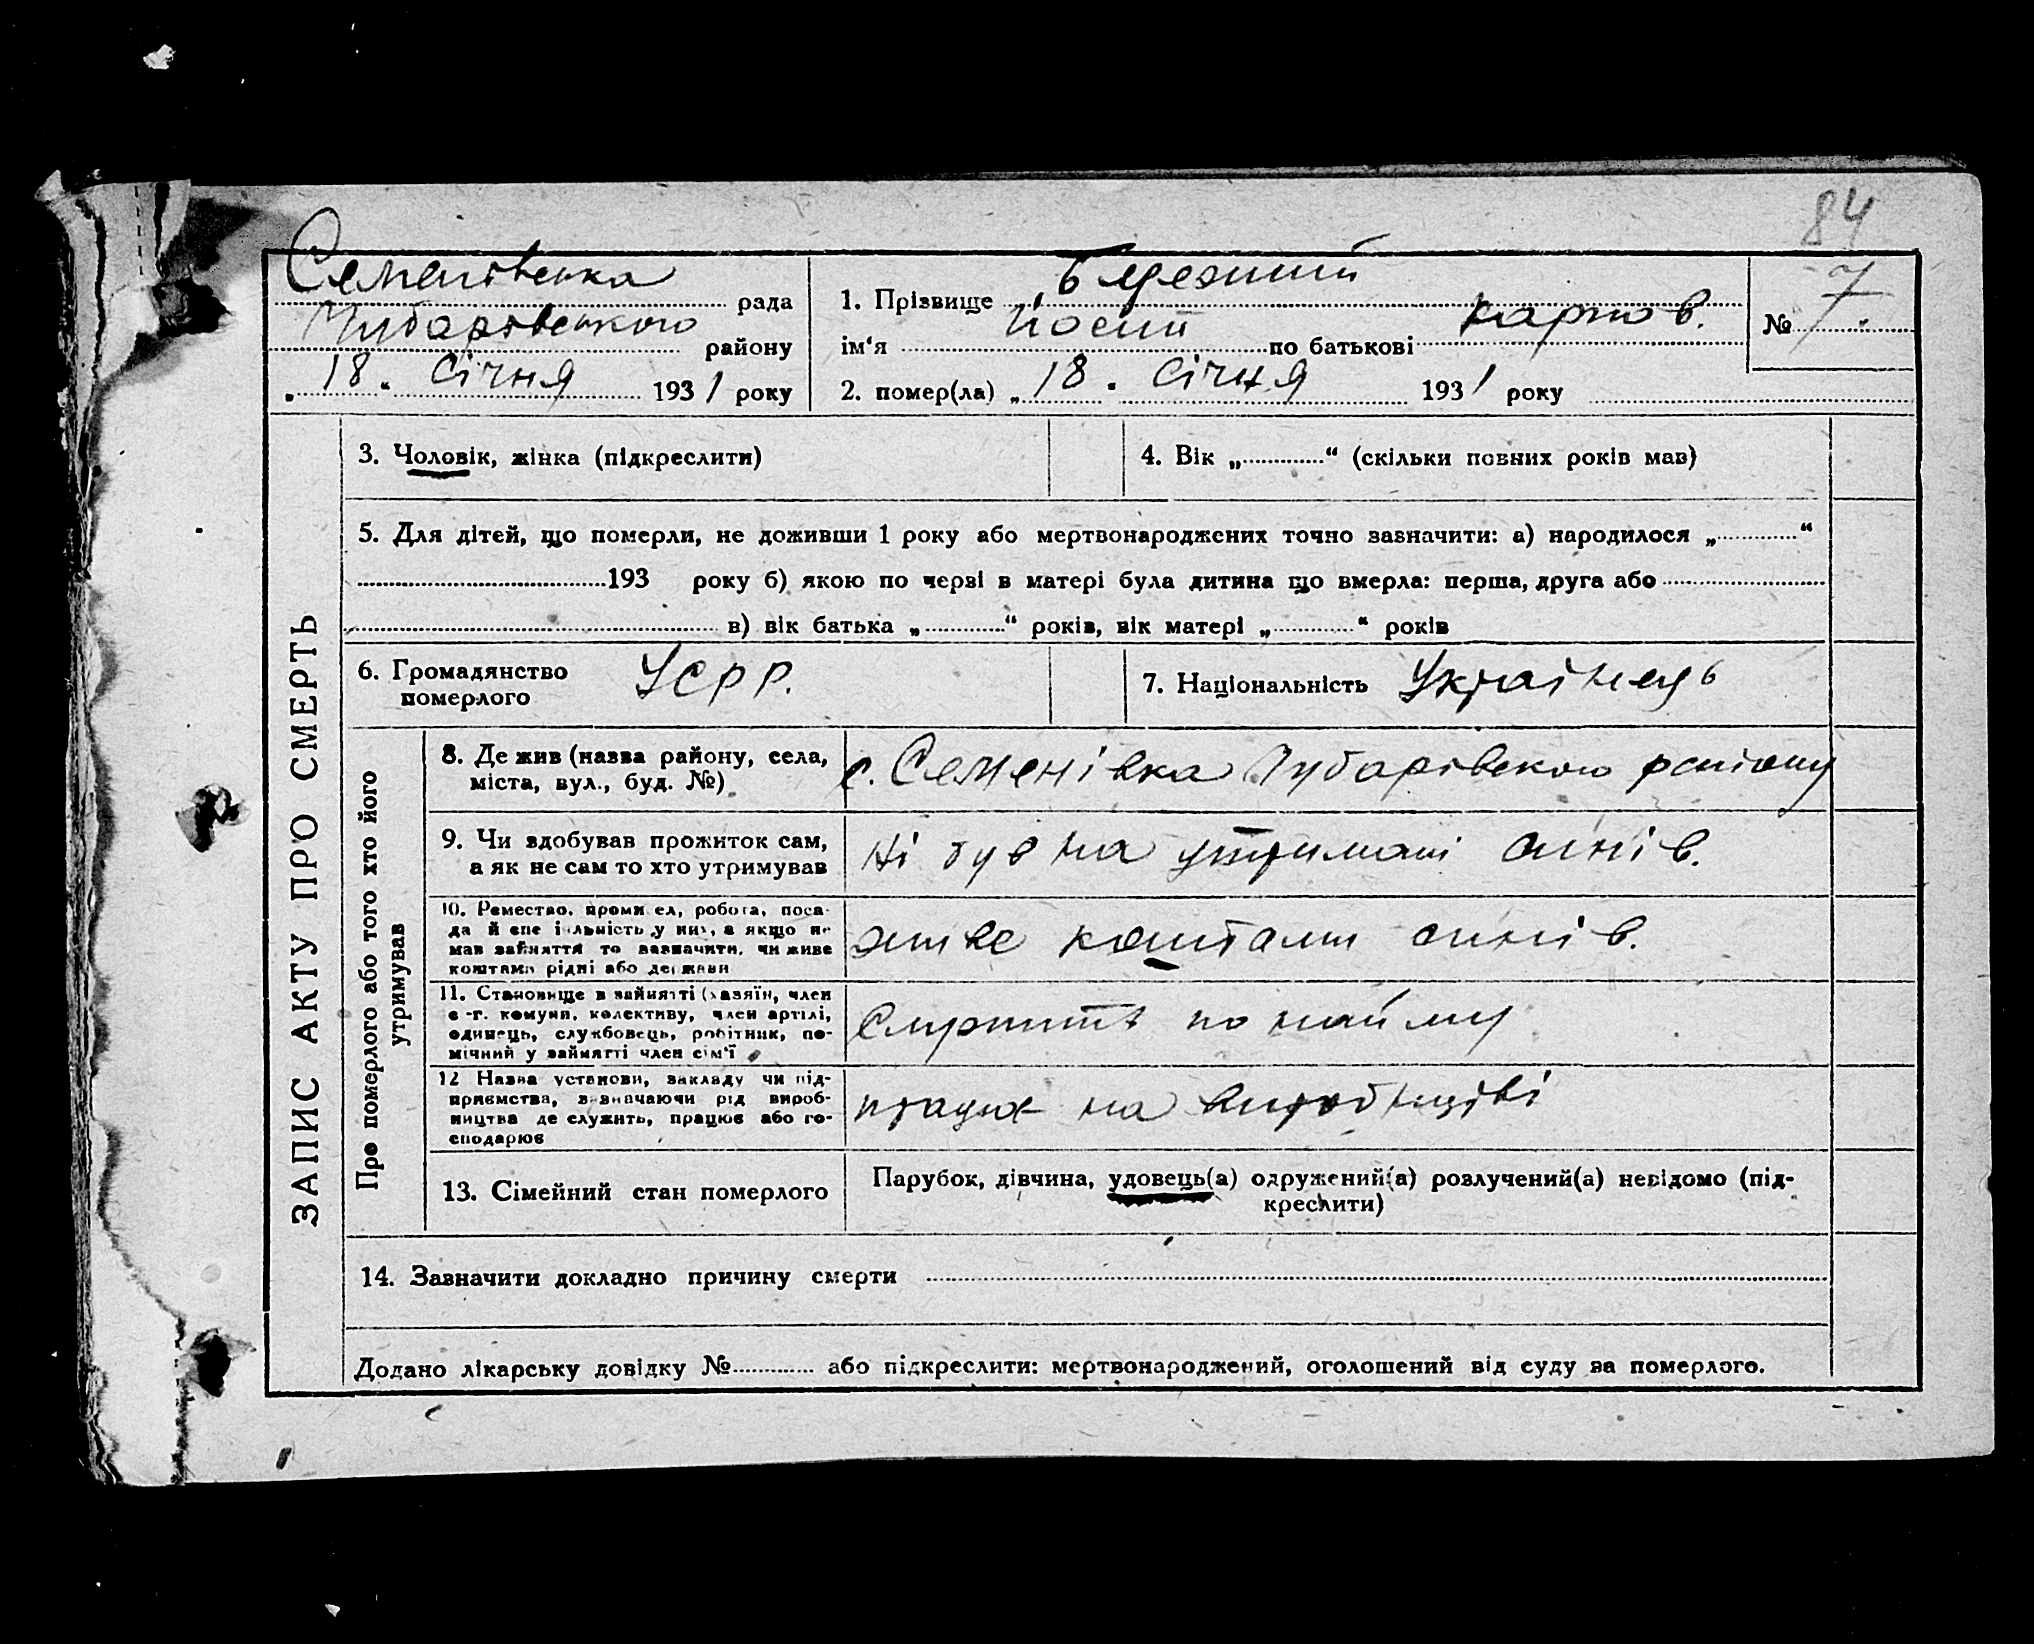 84
Семенівська рада
Чубарівського району
„ 18 “ Січня 1931 року
1. Прізвище Бережний
ім'я Йосип по батькові Карпов.
2. помер(ла) „ 18 “ Січня 1931 року
№ 7.
ЗАПИС АКТУ ПРО СМЕРТЬ
3. Чоловік, жінка (підкреслити)
4. Вік „ “ (скільки повних років мав)
5. Для дітей, що померли, не доживши 1 року або мертвонароджених точно зазначити: а) народилося „ “
193 року б) якою по черві в матері була дитина що вмерла: перша, друга або
в) вік батька „ “ років, вік матері „ “ років
6. Громадянство
померлого
УСРР.
7. Національність Українець
Про померлого або того хто його
утримував
8. Де жив (назва району, села,
міста, вул., буд. №)
с. Семенівка Чубарівського району
9. Чи здобував прожиток сам,
а як не сам то хто утримував
Ні був на утримані синів.
10. Ремество, промисел, робота, поса-
да й спеціяльність у них, а якщо не
мав зайняття то зазначити, чи живе
коштами рідні або держави
живе коштами синів.
11. Становище в зайнятті (хазяїн, член
с.-г. комуни, колективу, член артілі,
одинець, службовець, робітник, по-
мічний у зайнятті член сім'ї
Служить по найму
12 Назва установи, закладу чи під-
приємства, зазначаючи рід вироб-
ництва де служить, працює або го-
сподарює
працює на виробництві
13. Сімейний стан померлого
Парубок, дівчина, удовець(а) одружений(а) розлучений(а) невідомо (під-
креслити)
14. Зазначити докладно причину смерти
Додано лікарську довідку № або підкреслити: мертвонароджений, оголошений від суду за померлого.